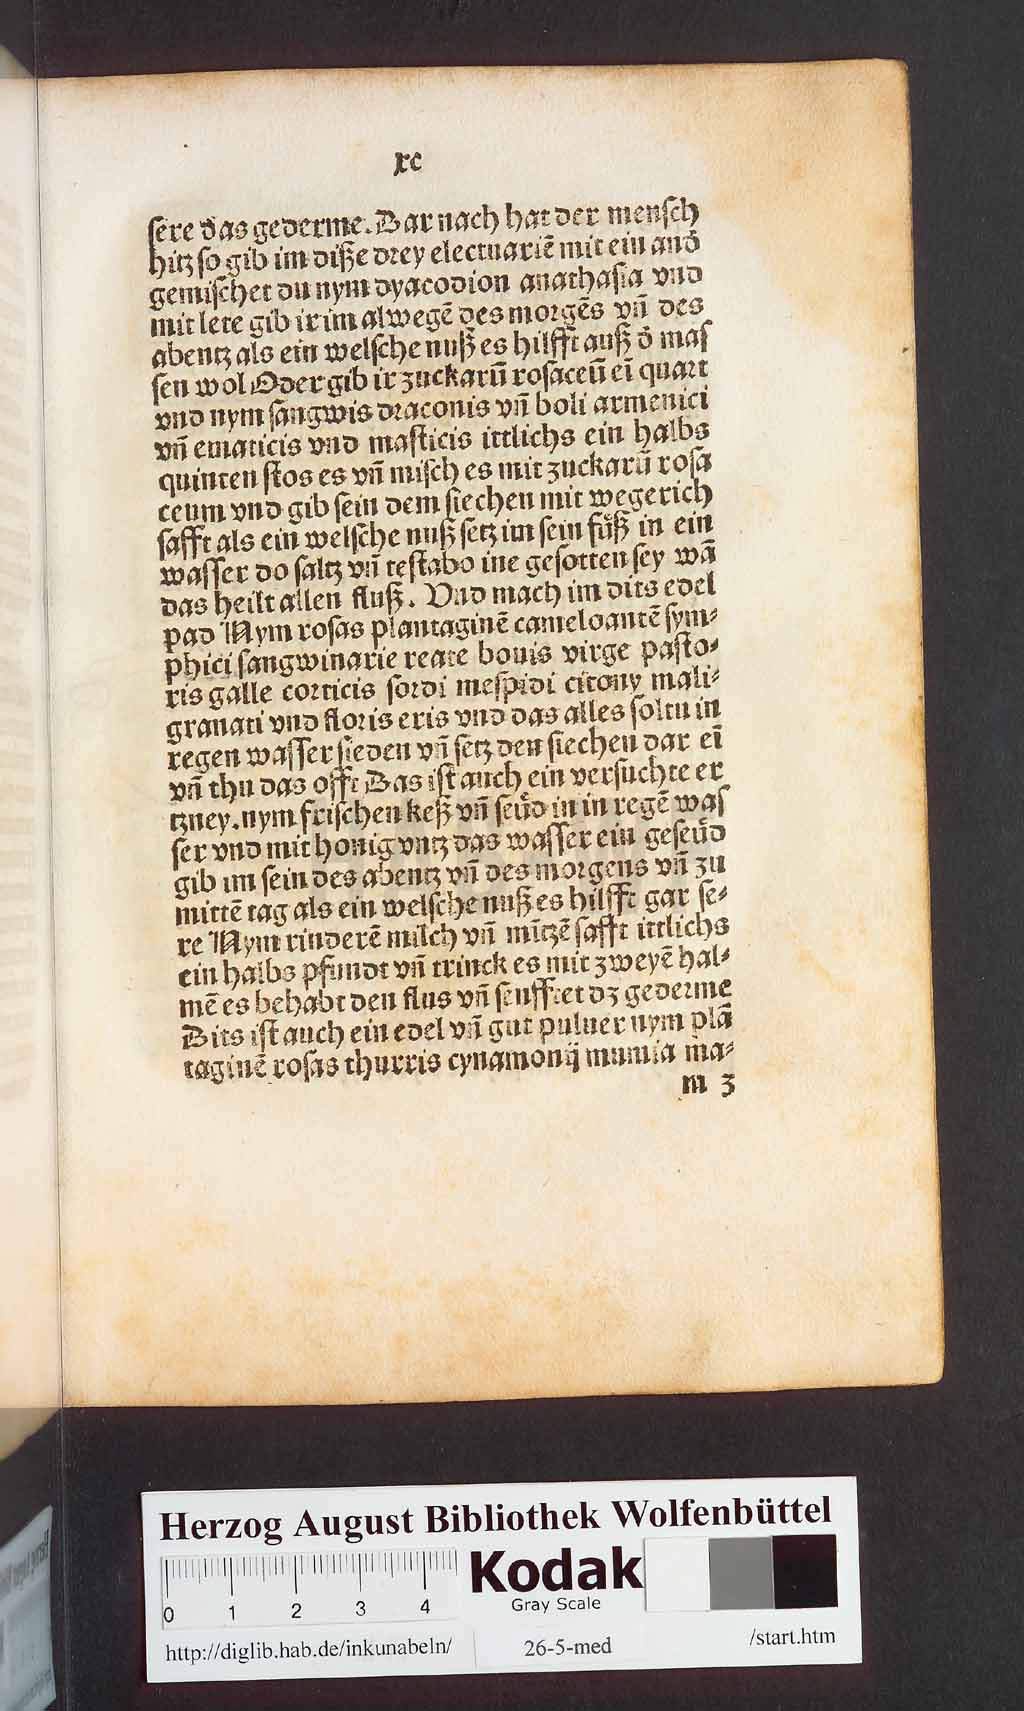 xc
sere das gederme. Dar nach hat der mensch
hitz so gib im disze drey electuariē mit ein and̄
gemischet du nym dyacodion anathasia vnd
mit lete gib ir im alwegē des morgēs vn̄ des
abentz als ein welsche nusz es hilfft ausz d̄ mas
sen wol Oder gib ir zuckarū rosaceū eī quart
vnd nym sangwis draconis vn̄ boli armenici
vn̄ ematicis vnd masticis ittlichs ein halbs
quinten stos es vn̄ misch es mit zuckarū rosa
ceum vnd gib sein dem siechen mit wegerich
safft als ein welsche nusz setz im sein fuͤsz in ein
wasser do saltz vn̄ testabo ine gesotten sey wā
das heilt allen flusz. Vnd mach im dits edel
pad Nym rosas plantaginē cameloantē sym⸗
phici sangwinarie reate bouis virge pasto⸗
ris galle corticis sordi mespidi citony mali⸗
granati vnd floris eris vnd das alles soltu in
regen wasser sieden vn̄ setz den siechen dar eī
vn̄ thu das offt Das ist auch ein versuchte er
tzney. nym frischen kesz vn̄ seuͤd in in regē was
ser vnd mit honig vntz das wasser ein geseuͤd
gib im sein des abentz vn̄ des morgens vn̄ zu
mittē tag als ein welsche nusz es hilfft gar se⸗
re Nym rinderē milch vn̄ mītzē safft ittlichs
ein halbs pfundt vn̄ trinck es mit zweyē hal⸗
mē es behabt den flus vn̄ senfftet dz gederme
Dits ist auch ein edel vn̄ gut puluer nym plā
taginē rosas thurris cynamonij mumia ma⸗
m 3
Herzog August Bibliothek Wolfenbüttel
0 1 2 3 4
Kodak
Gray Scale
http://diglib.hab.de/inkunabeln/ 26-5-med /start.htm